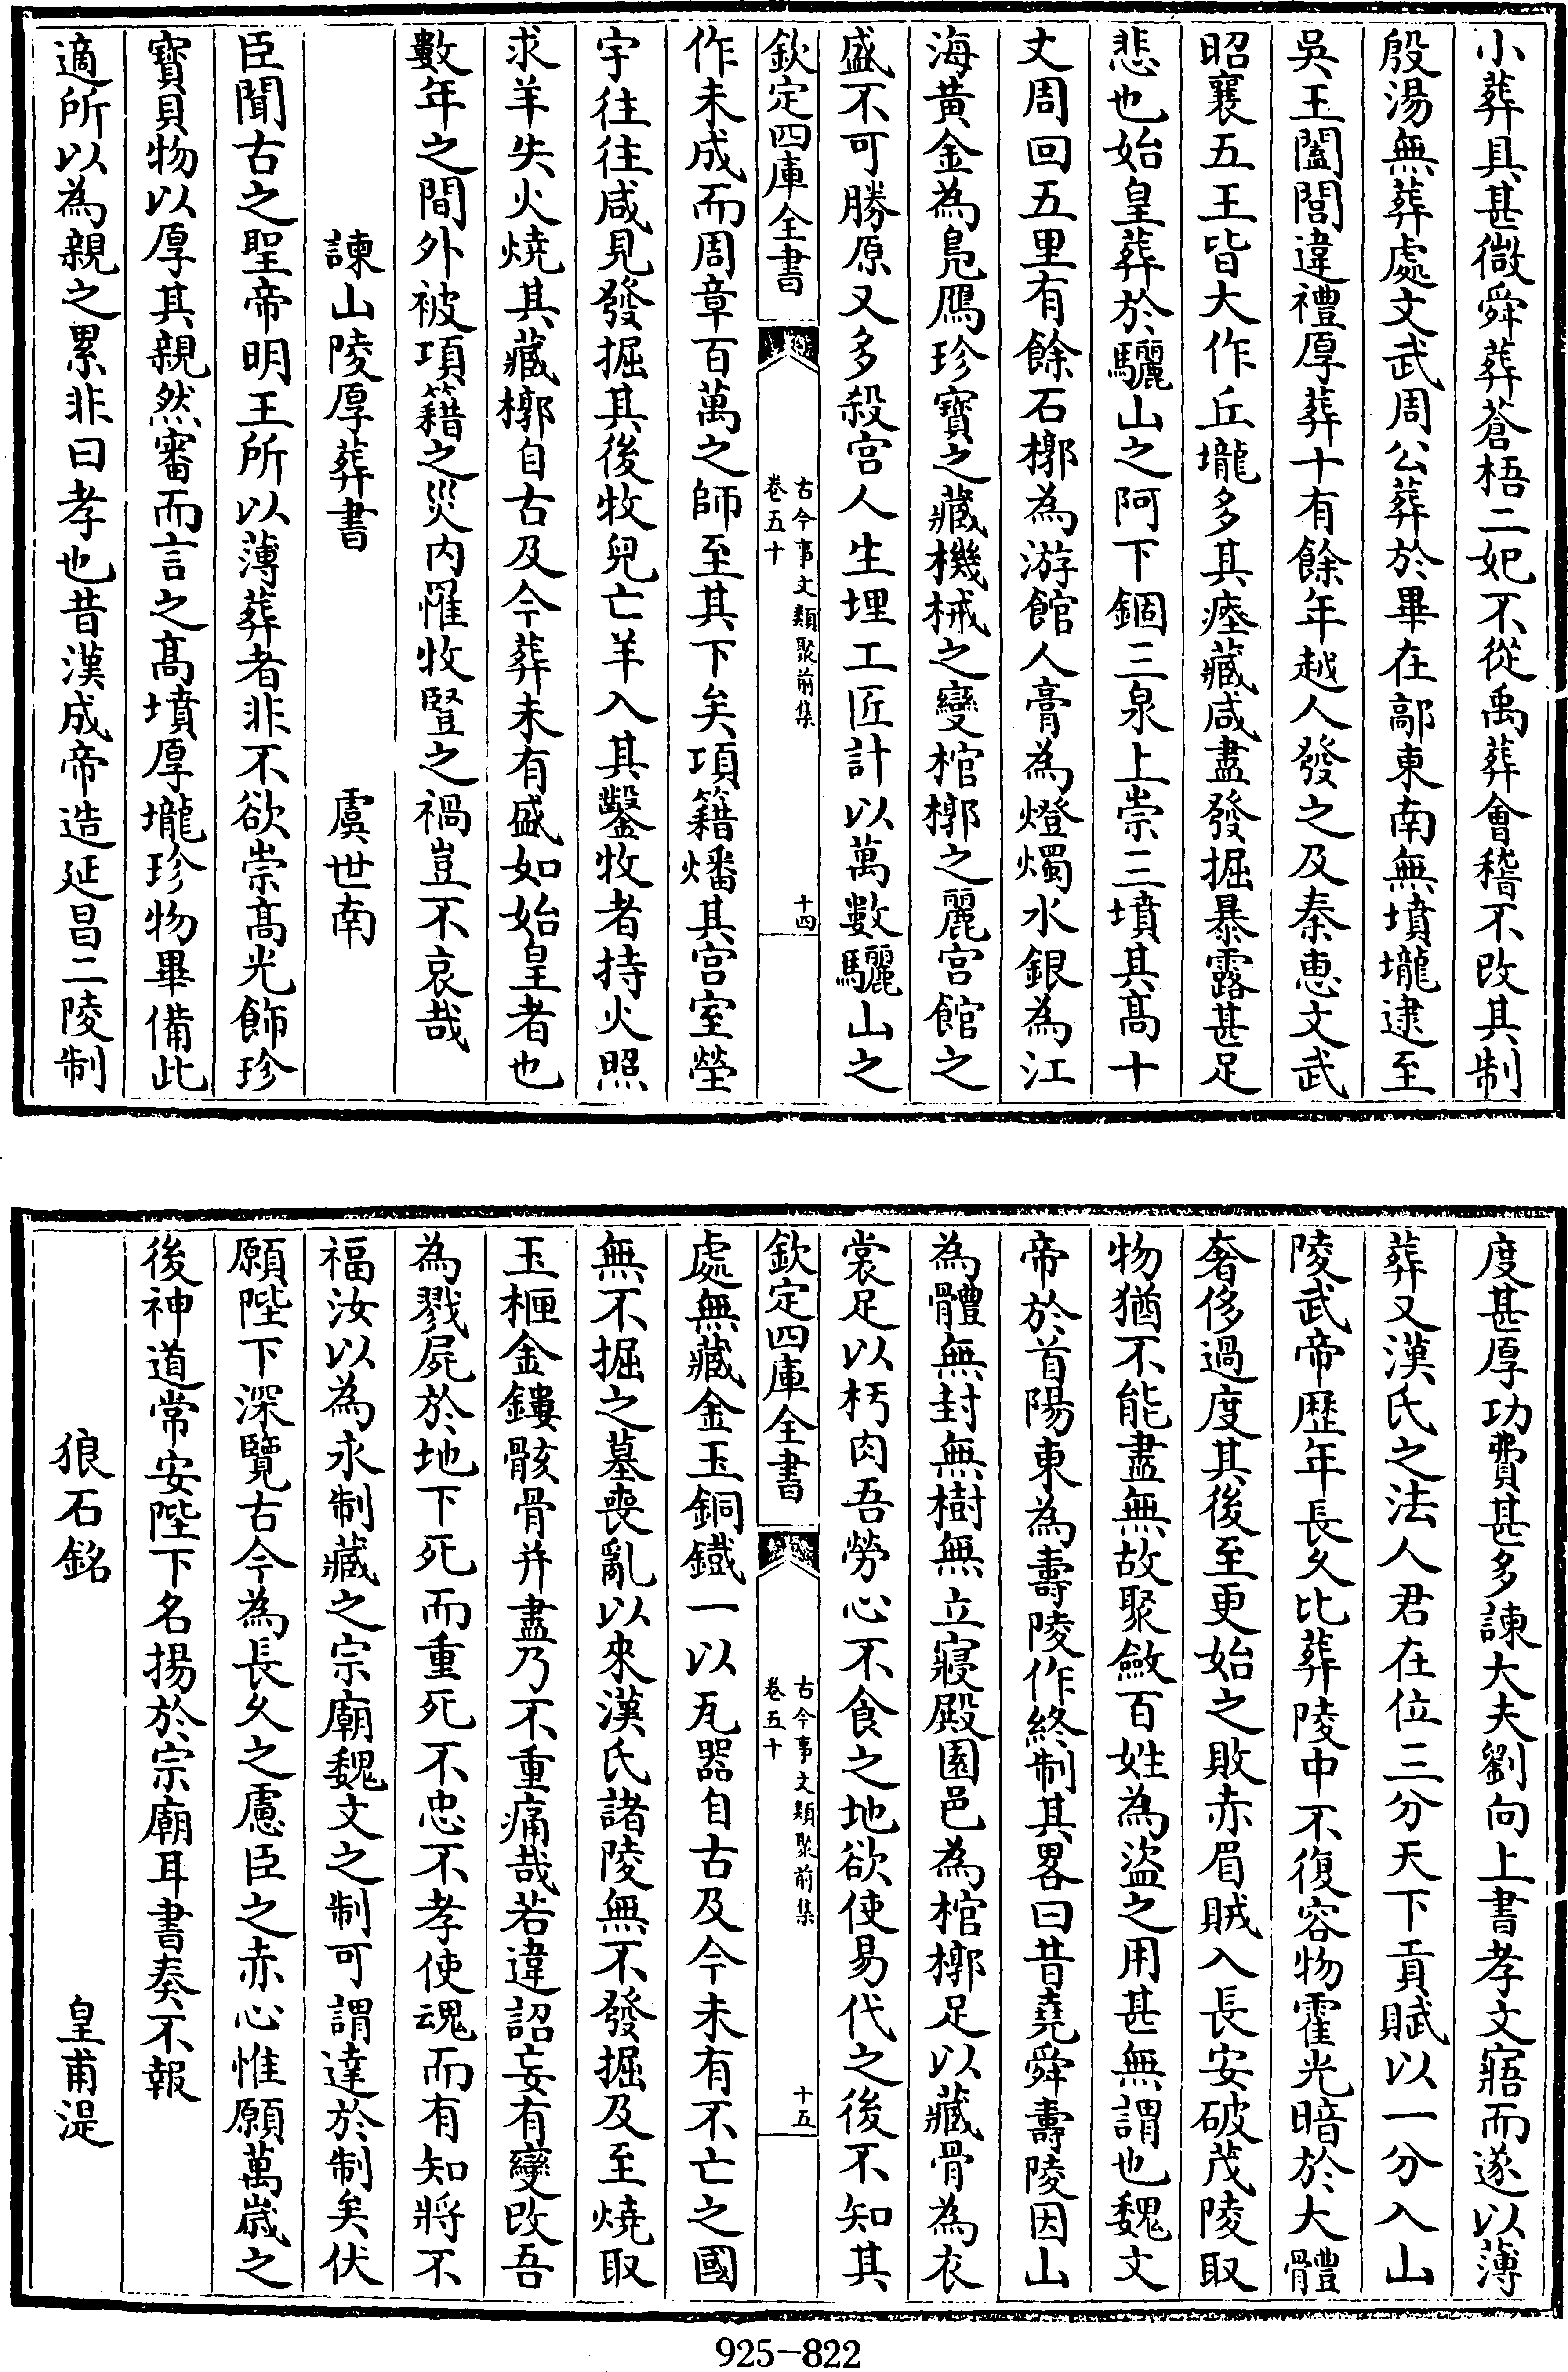 小葬具甚微舜葬蒼梧二妃不從禹葬會稽不改其制
殷湯無葬處文武周公葬於畢在鄗東南無墳壠逮至
吳王闔閭違禮厚葬十有餘年越人發之及秦惠文武
昭襄五王皆大作丘壠多其瘞藏咸盡發掘暴露甚足
悲也始皇葬於驪山之阿下錮三泉上崇三墳其高十
丈周回五里有餘石槨為游館人膏為燈燭水銀為江
海黃金為鳧鴈珍寶之藏機械之變棺槨之麗宮館之
盛不可勝原又多殺宮人生埋工匠計以萬數驪山之
欽定四庫全書
古今事文類聚前集
卷五十
十四
作未成而周章百萬之師至其下矣項籍燔其宮室塋
宇往往咸見發掘其後牧兒亡羊入其鑿牧者持火照
求羊失火燒其藏槨自古及今葬未有盛如始皇者也
數年之間外被項籍之災內罹牧豎之禍豈不哀哉
諫山陵厚葬書 虞世南
臣聞古之聖帝明王所以薄葬者非不欲崇高光飾珍
寶貝物以厚其親然審而言之高墳厚壠珍物畢備此
適所以為親之累非曰孝也昔漢成帝造延昌二陵制
度甚厚功費甚多諫大夫劉向上書孝文寤而遂以薄
葬又漢氏之法人君在位三分天下貢賦以一分入山
陵武帝歷年長久比葬陵中不復容物霍光暗於大體
奢侈過度其後至更始之敗赤眉賊入長安破茂陵取
物猶不能盡無故聚斂百姓為盜之用甚無謂也魏文
帝於首陽東為壽陵作終制其畧曰昔堯舜壽陵因山
為體無封無樹無立寢殿園邑為棺槨足以藏骨為衣
裳足以朽肉吾勞心不食之地欲使易代之後不知其
欽定四庫全書
古今事文類聚前集
卷五十
十五
處無藏金玉銅鐵一以瓦器自古及今未有不亡之國
無不掘之墓喪亂以來漢氏諸陵無不發掘及至燒取
玉柙金鏤骸骨并盡乃不重痛哉若違詔妄有變改吾
為戮屍於地下死而重死不忠不孝使魂而有知將不
福汝以為永制藏之宗廟魏文之制可謂達於制矣伏
願陛下深覽古今為長久之慮臣之赤心惟願萬歲之
後神道常安陛下名揚於宗廟耳書奏不報
狼石銘 皇甫湜
925-822